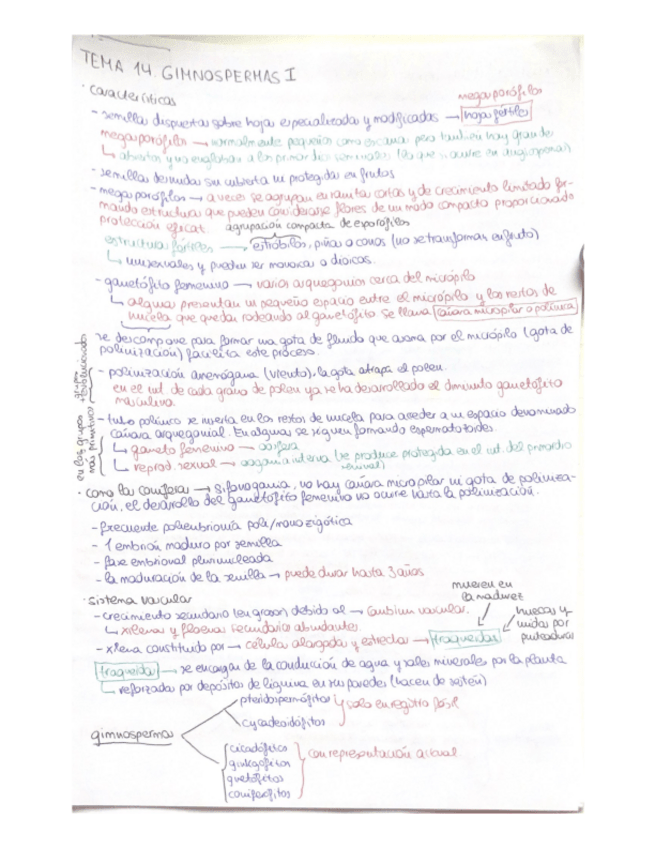 TEMA 14. GIMNOSPERMAS I
· características
megasporófilos
- semillas dispuestas sobre hojas especializadas y modificadas → hojas fértiles
megasporófilos → normalmente pequeños como escamas pero también hay grandes
↳ abiertos y no engloban a los primordios seminales (lo que sí ocurre en angiospermas)
- semillas desnudas sin cubierta ni protegidas en frutos
- megasporófilos → a veces se agrupan en ramitas cortas y de crecimiento limitado for-
mando estructuras que pueden considerarse flores de un modo compacto proporcionando
protección eficaz.
agrupación compacta de esporófilos
estructuras fértiles → estróbilos, piñas o conos (no se transforman en fruto)
↳ unisexuales y pueden ser monoicas o dioicas.
- gametófito femenino → varios arquegonios cerca del micrópilo
↳ algunas presentan un pequeño espacio entre el micrópilo y los restos de
nucela que quedan rodeando al gametófito se llama cámara micropilar o polínica
se descompone para formar una gota de fluido que asoma por el micrópilo (gota de
polinización) facilita este proceso.
- polinización anemógama (viento): la gota atrapa el polen.
en el int. de cada grano de polen ya se ha desarrollado el diminuto gametófito
masculino.
en los grupos más primitivos
- tubo polínico se inserta en los restos de nucela para acceder a un espacio denominado
cámara arquegonial. En algunas se siguen formando espermatozoides.
↳ gameto femenino → oosfera
↳ reprod. sexual → oogamia interna (se produce protegida en el int. del primordio
seminal)
· como las coníferas → sifonogamia, no hay cámara micropilar ni gota de poliniza-
ción, el desarrollo del gametófito femenino no ocurre hasta la polinización.
- frecuente poliembrionía poli/monozigótica
- 1 embrión maduro por semilla
- fase embrional plurinucleada
- la maduración de la semilla → puede durar hasta 3 años
· sistema vascular
mueren en
la madurez
- crecimiento secundario (en grosor) debido al → cambium vascular.
huecas y
unidas por
punteaduras
↳ xilema y floema secundarios abundantes
- xilema constituido por → células alargadas y estrechas → traqueidas
traqueidas → se encargan de la conducción de agua y sales minerales por la planta
↳ reforzadas por depósitos de lignina en sus paredes (hacen de sostén)
gimnospermas
pteridospermófitos
cycadeoidófitos
solo en registro fósil
cicadófitos
ginkgófitos
gnetófitos
coniferófitos
con representación actual